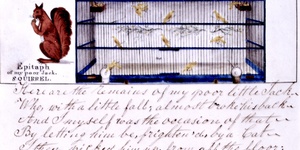 Epitaph
of my poor Jack,
SQUIRREL.
Here are the remains of my poor little Jack
Who with a little fall, almost broke his back
And I myself was the occasion of that
By letting him be frightened by a Cat
I then picked him up from off the floor